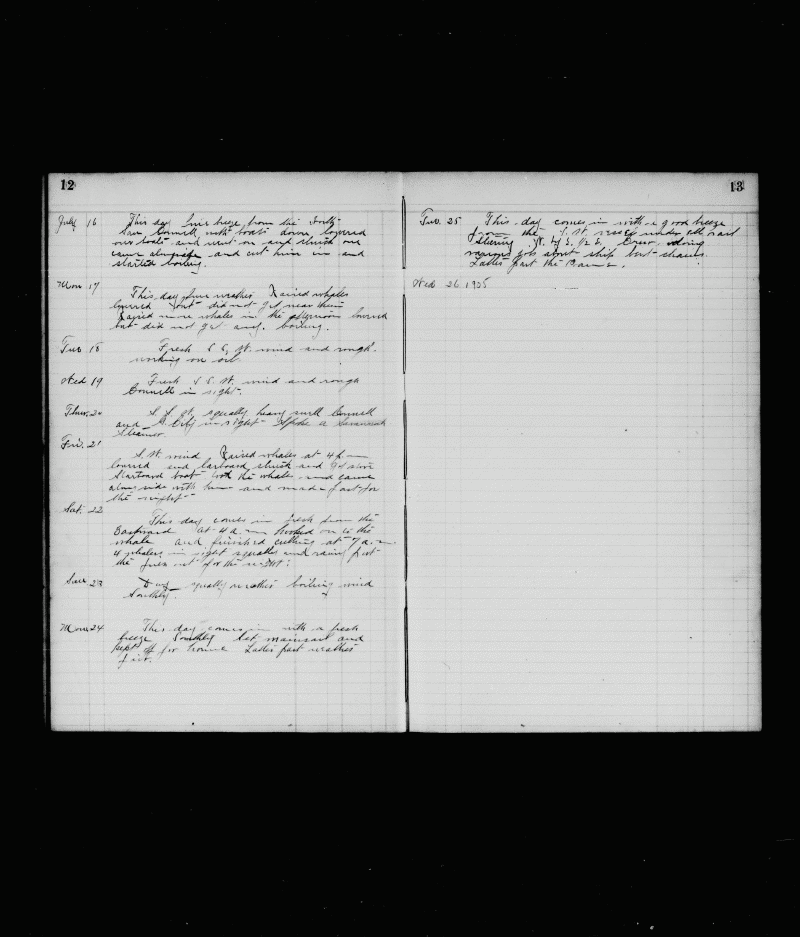 12
July 16 This day fine breeze from the South
Saw Connell with boats down lowered
our boats and went on and struck one
came alongside and cut him in and
started boiling.
Mon 17
This day fine weather Raised whales
lowered but did not get near them
Raised more whales in the afternoon lowered
but did not get any. boiling.
Tue 18 Fresh S S. W. wind and rough.
working on oil
Wed 19 Fresh S S. W. wind and rough
Connell in sight.
Thur. 20 S. W. squally heavy swell Connell
and City in sight Spoke a Savannah
Steamer.
Fri. 21
S. W. wind Raised whales at 4
lowered and larboard struck and got stove
Starboard boat took the whale and came
along side with him and made fast for
the night
Sat. 22
This day comes in fresh from the
Eastward At 4 a. m hooked on to the
whale and finished cutting at 7 a. m
4 whalers in sight squalls and rainy put
the fires out for the night.
Sun 23 Day squally weather boiling wind
Southly.
Mon. 24 This day comes in with a fresh
breeze Southly Set mainsail and
kept off for home Latter part weather
fine.
13
Tue. 25 This day comes in with a good breeze
from the S. W. vessel under all sail
Steering N. by E. 1/2 E. Crew doing
various jobs about ship but chains.
Latter part the same.
Wed 26 1905